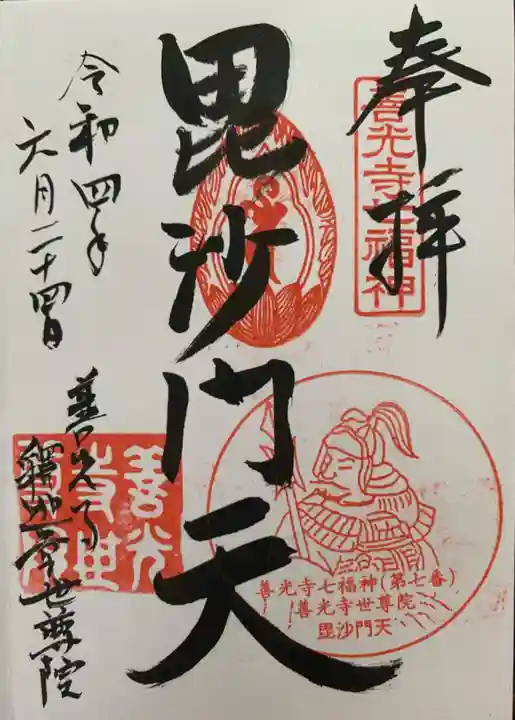 奉拝
善光寺七福神
毘沙門天
善光寺七福神(第七番)
善光寺世尊院
毘沙門天
令和四年
六月二十四日
善光寺
釋迦堂世尊院
善光
寺世